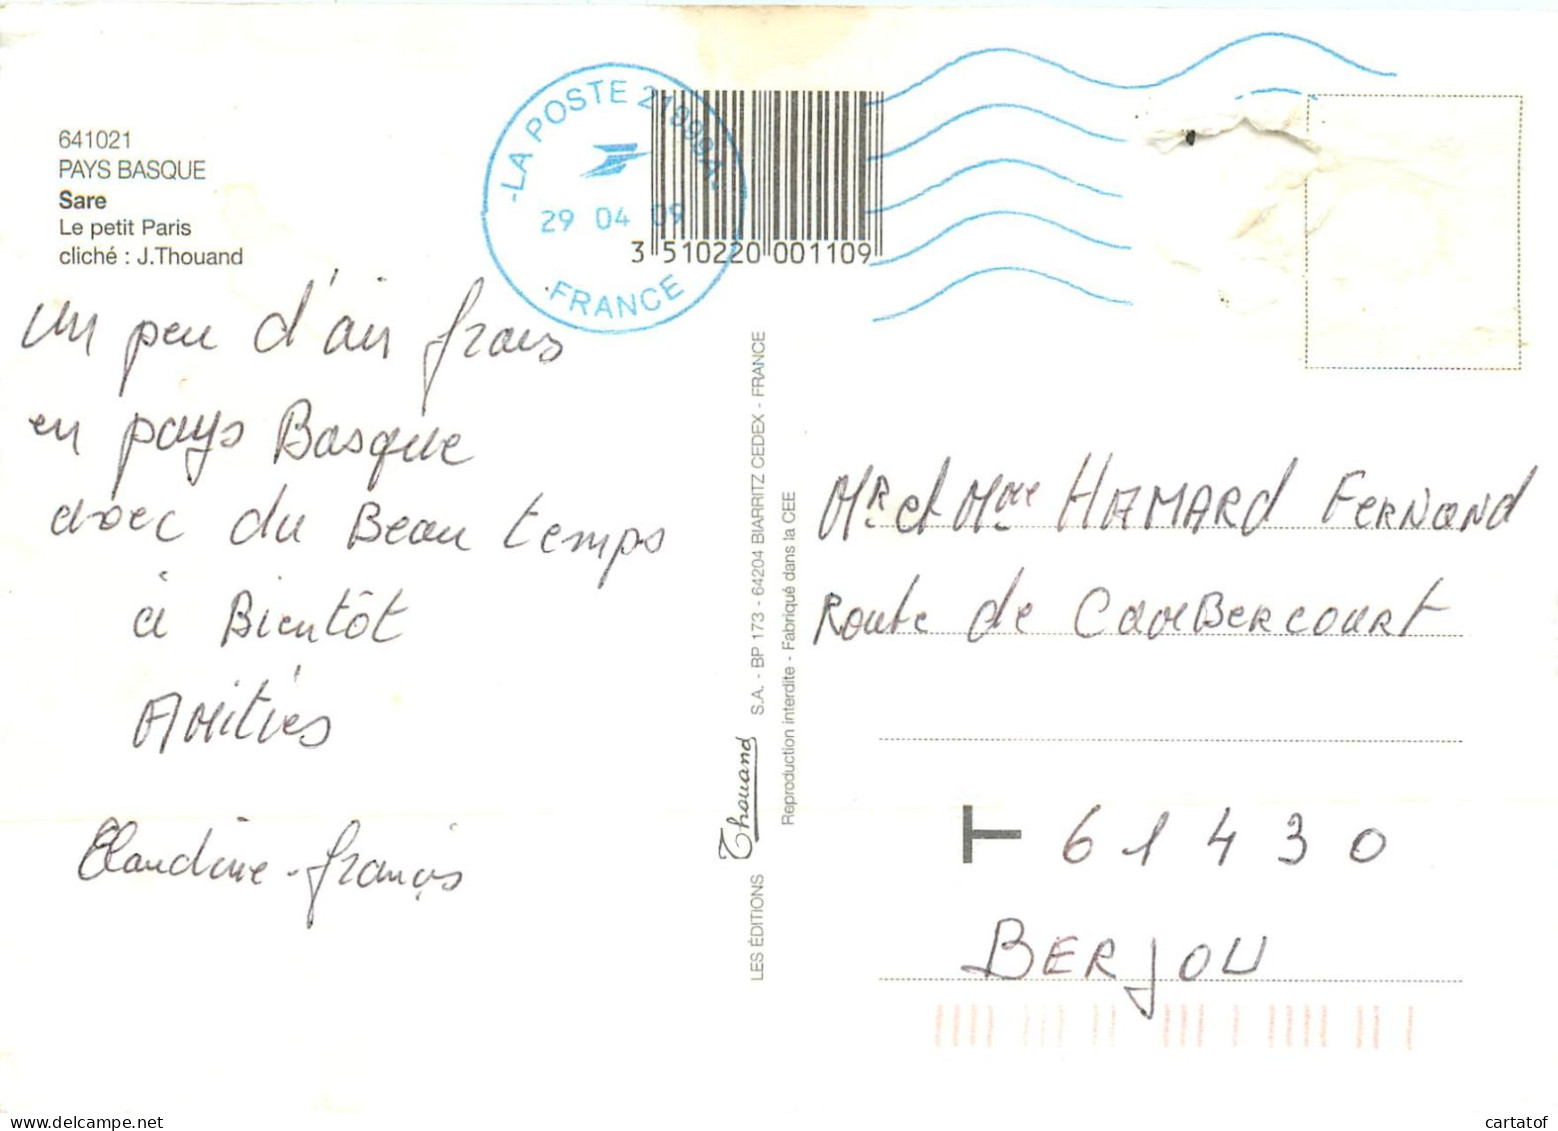 641021
PAYS BASQUE
Sare
Le petit Paris
cliché : J.Thouand
-LA POSTE 21999A-
29 04 09
FRANCE
3 510220 001109
un peu d'air frais
en pays Basque
avec du Beau temps
à Bientôt
Amitiés
Claudine - francis
LES ÉDITIONS Thouand S.A. - BP 173 - 64204 BIARRITZ CEDEX - FRANCE
Reproduction interdite - Fabriqué dans la CEE
MR et Mme HAMARD FERNAND
Route de CAMBERCOURT
T 61430
BERJOU
www.delcampe.net
cartatof